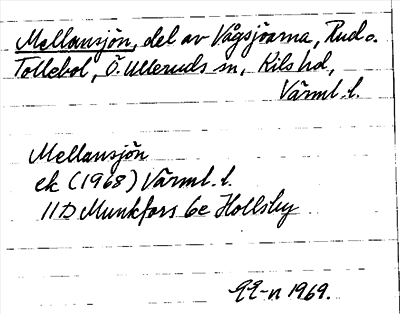 Mellansjön, del av Vågsjöarna, Rud o.
Tollebol, Ö. Ulleruds sn, Kils hd,
Värml. l.
Mellansjön
ek (1968) Värml. l.
11D Munkfors 6e Hollsby
1969.